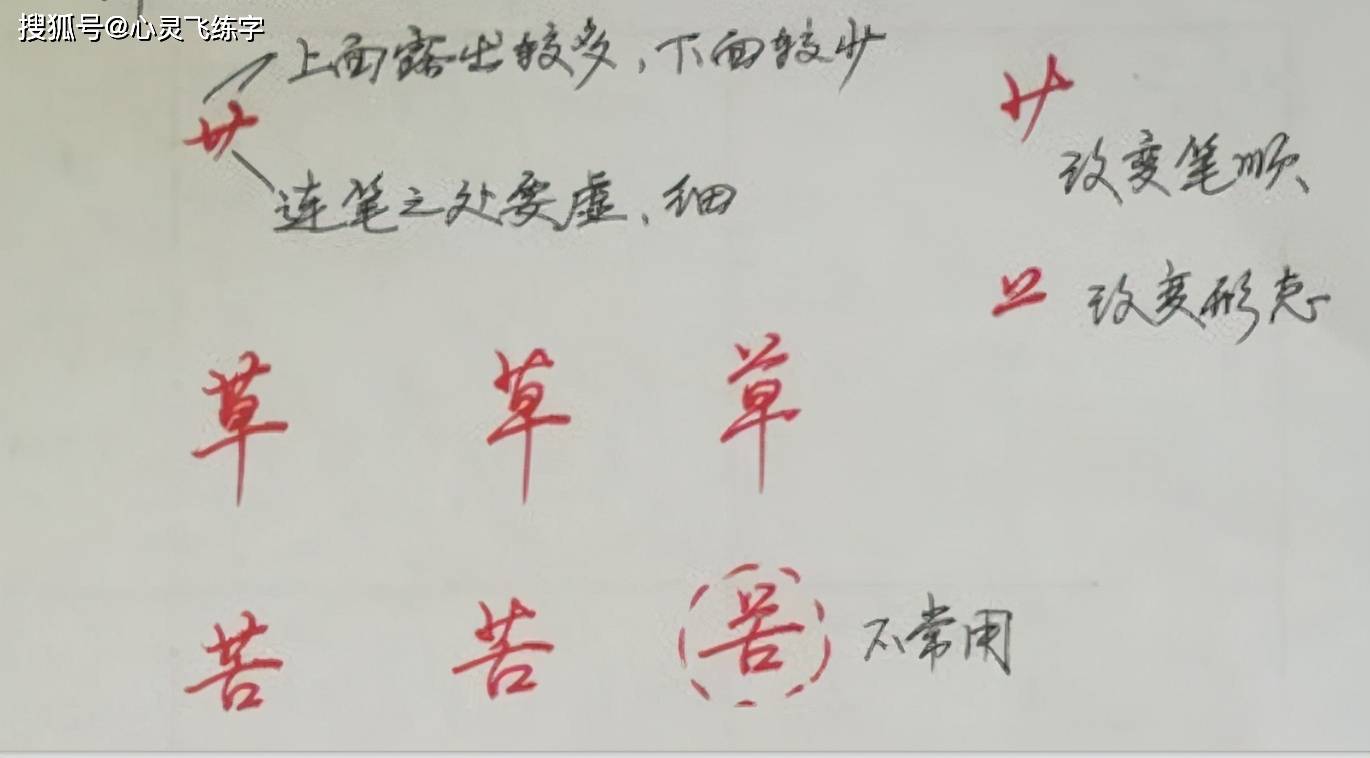 搜狐号@心灵飞练字
上面露出较多，下面较少
艹
艹
连笔之处要虚、细
改变笔顺、
改变形态
草 草 草
苦 苦 苦 不常用